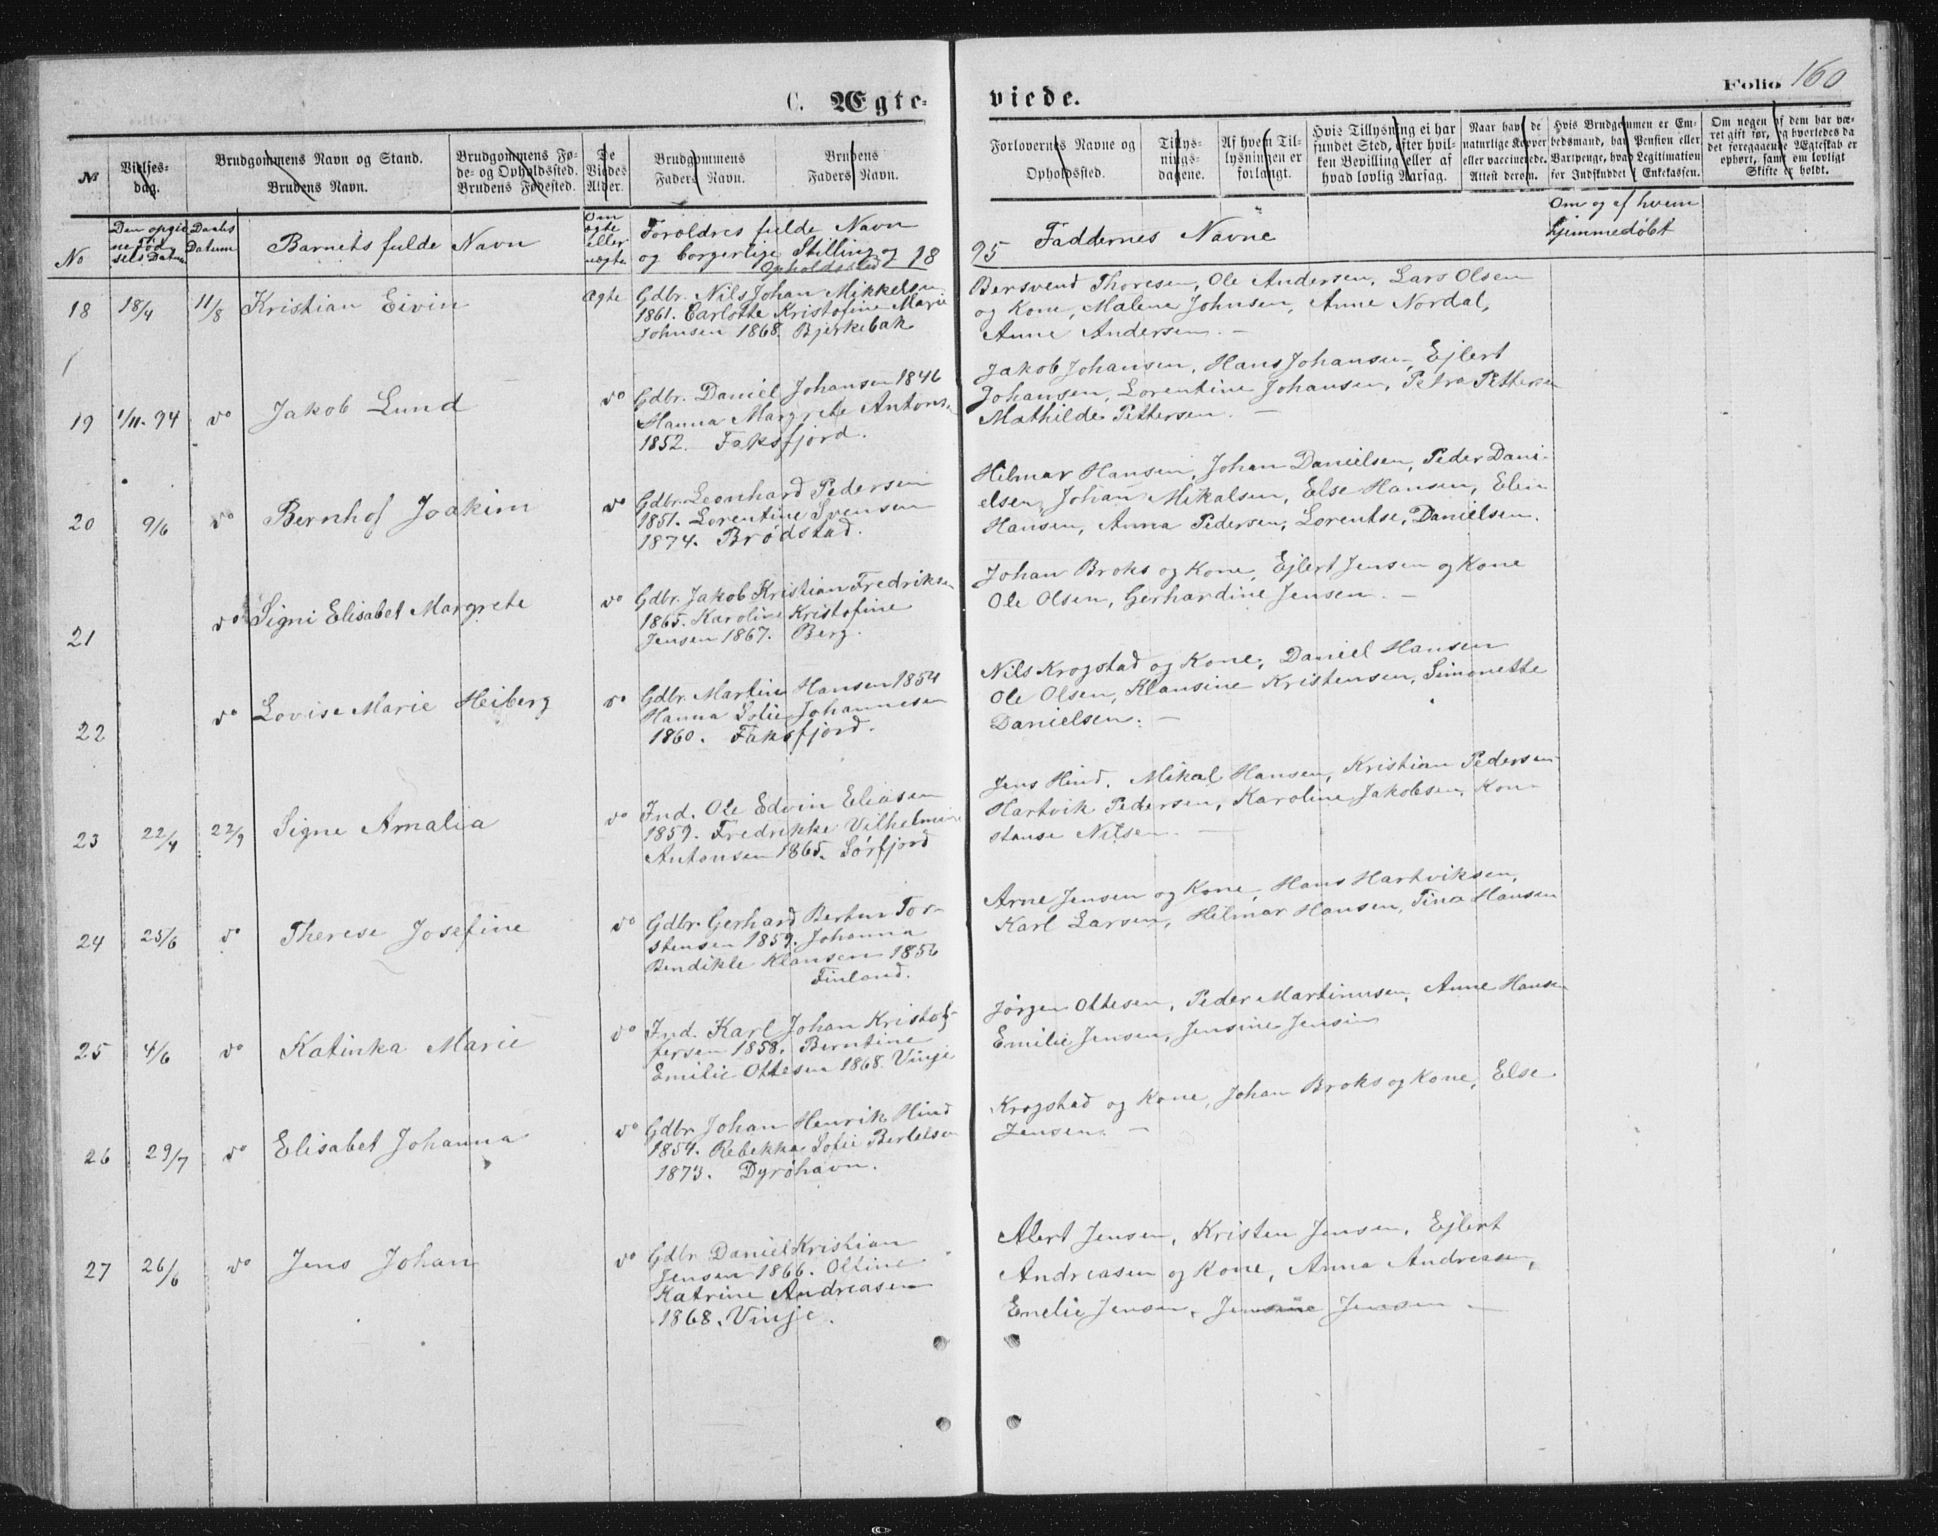 C. Ægte-
viede.
Folio 160
No
Vielses-
dag.
Brudgommens Navn og Stand.
Brudens Navn.
Brudgommens Fø-
de- og Opholdssted.
Brudens Fødested.
De
Viedes
Alder.
Brudgommens
Faders Navn.
Brudens
Faders Navn.
Forlovernes Navne og
Opholdssted.
Tillys-
nings-
dagene.
Af hvem Til-
lysningen er
forlangt.
Hvis Tillysning ei har
fundet Sted, efter hvil-
ken Bevilling eller af
hvad lovlig Aarsag.
Naar have de
naturlige Kopper
eller vaccinerede.
Attest derom.
Hvis Brudgommen er Em-
bedsmand, har Pension eller
Vartpenge, hvad Legitimation
for Indskuddet i Enkekassen.
Om nogen af dem har væ-
ret gift før, og hvorledes da
det foregaaende Ægteskab er
ophørt, samt om lovligt
Skifte er holdt.
No
Den opgiv
ne Fød
sels Datum
Daabs
Datum
Barnets fulde Navn
Om
ægte
eller
uægte
Forældres fulde Navn
og borgerlige Stilling og
Opholdssted
18
95
Faddernes Navne
Om og af hvem
hjemmedøbt
18 18/4 11/8 Kristian Eivin Ægte
Gdbr. Nils Johan Mikkelsen
1861. Carlotte Kristofine Marie
Johnsen 1868. Bjerkebak
Bersvend Thoresen, Ole Andersen, Lars Olsen
og Kone, Malene Johnsen, Anne Nordal,
Anne Andersen. —
19 1/11-94 do Jakob Lund do
Gdbr. Daniel Johansen 1846
Hanna Margrete Antons.
1852. Faksfjord.
Jakob Johansen, Hans Johansen, Ejlert
Johansen, Lorentine Johansen, Petra Pettersen
Mathilde Pettersen. —
20 9/6 do Bernhof Joakim do
Gdbr. Leonhard Pedersen
1851. Lorentine Svensen
1874. Brødstad.
Hilmar Hansen, Johan Danielsen, Peder Dani-
elsen, Johan Mikalsen, Else Hansen, Elen
Hansen, Anna Pedersen, Lorentse Danielsen.
21 do Signi Elisabet Margrete do
Gdbr. Jakob Kristian Fredriksen
1865. Karoline Kristofine
Jensen 1867. Berg.
Johan Broks og Kone, Ejlert Jensen og Kone
Ole Olsen, Gerhardine Jensen. —
22 do Lovise Marie Heiberg do
Gdbr. Martin Hansen 1854
Hanna Sofie Johannesen
1860. Faksfjord.
Nils Krogstad og Kone, Daniel Hansen
Ole Olsen, Klausine Kristensen, Simonette
Danielsen. —
23 22/4 22/9 Signe Amalia do
Ind. Ole Edvin Eliasen
1859. Fredrikke Vilhelmine
Antonsen 1865. Sørfjord
Jens Hind, Mikal Hansen, Kristian Pedersen
Hartvik Pedersen, Karoline Jakobsen, Kon-
stanse Nilsen. —
24 25/6 do Therese Josefine do
Gdbr. Gerhard Bertin Tor-
stensen 1859. Johanna
Bendikte Klausen 1856
Finland.
Arne Jensen og Kone, Hans Hartviksen,
Karl Larsen, Hilmar Hansen, Tina Hansen
25 4/6 do Katinka Marie do
Ind. Karl Johan Kristof-
fersen 1858. Berntine
Emilie Ottesen 1868. Vinje
Jørgen Ottesen, Peder Martinusen, Anne Hansen
Emilie Jensen, Jensine Jensen
26 29/7 do Elisabet Johanna do
Gdbr Johan Henrik Hind
1854. Rebekka Sofie Bertelsen
1873. Dyrøhavn.
Krogstad og Kone, Johan Broks og Kone, Else
Jensen. —
27 26/6 do Jens Johan do
Gdbr Daniel Kristian
Jensen 1866. Oltine
Katrine Andreasen
1868. Vinje.
Alert Jensen, Kristen Jensen, Ejlert
Andreasen og Kone, Anna Andreasen,
Emelie Jensen, Jensine Jensen —